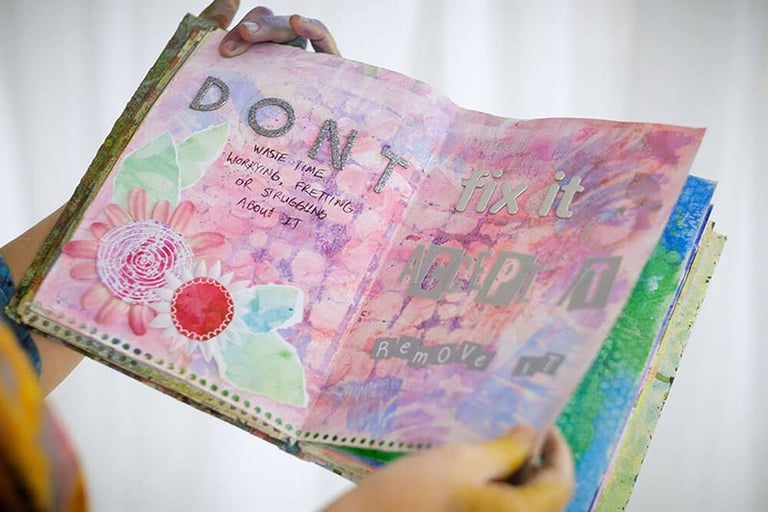 DONT
WASTE TIME
WORRYING, FRETTING
OR STRUGGLING
ABOUT IT
fix it
ACCEPT IT
REMOVE IT